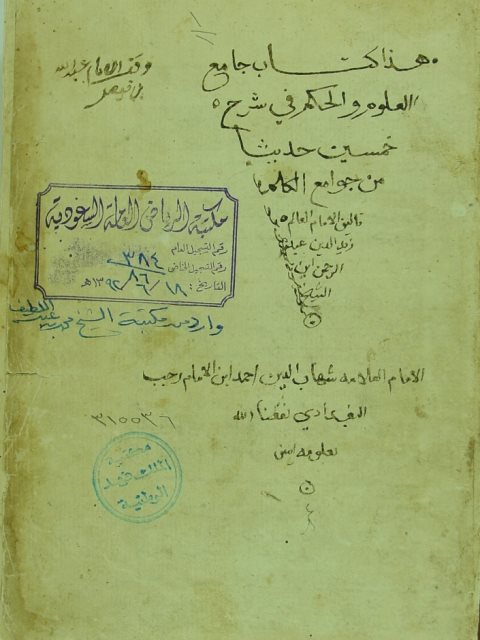 هذا كتاب جامع
العلوم والحكم في شرح
خمسين حديثا
من جوامع الكلم
تاليف الامام العالم
زين الدين عبد
الرحمن ابن
الشيخ
الامام العلامه شهاب الدين احمد ابن الامام رجب
البغدادي نفعنا الله
بعلومه امين
وقف الامام عبدالله
بن فيصل
مكتبة الرياض العامة السعودية
رقم التسجيل العام
٣٨٤
رقم التسجيل الخاص ٨٦
التاريخ: ١٨/٦/١٣٩٢هـ
وارد من مكتبة الشيخ محمد بن عبد اللطيف
٣١٥٥٣٦
مكتبة
الملك فهد
الوطنية